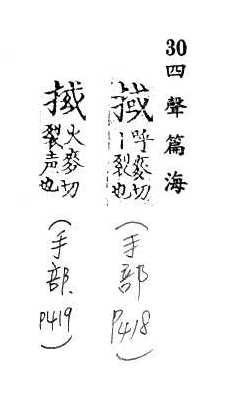 30四聲篇海
掝
呼麥切
丨裂也
(手部
P418)
㨜
火麥切
裂声也
(手部.
P419)